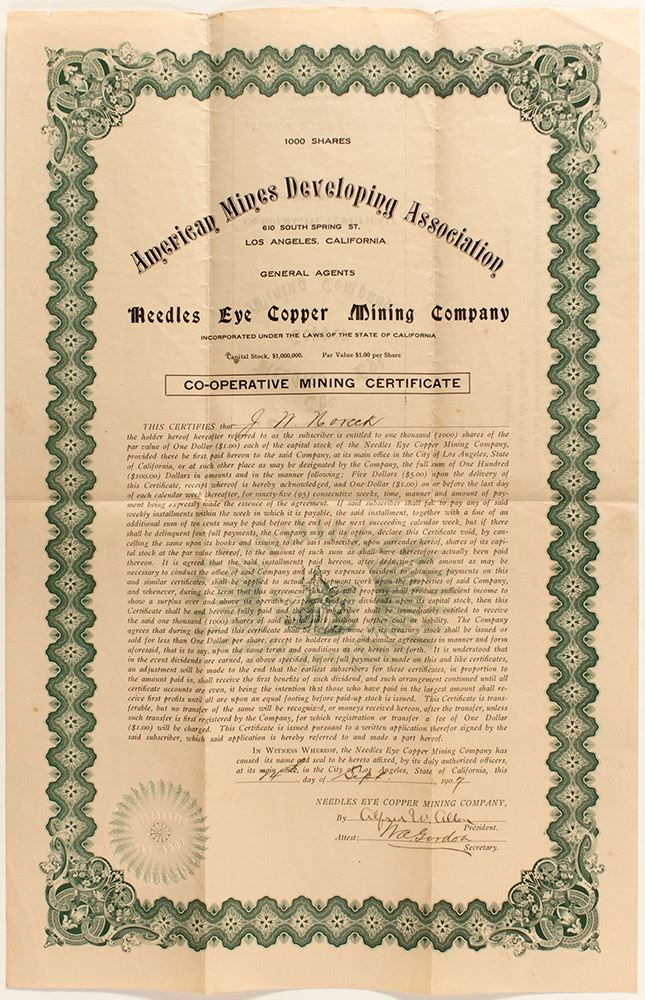 1000 SHARES
American Mines Developing Association
610 SOUTH SPRING ST.
LOS ANGELES, CALIFORNIA
GENERAL AGENTS
Needles Eye Copper Mining Company
INCORPORATED UNDER THE LAWS OF THE STATE OF CALIFORNIA
Capital Stock, $1,000,000. Par Value $1.00 per Share
CO-OPERATIVE MINING CERTIFICATE
THIS CERTIFIES that J W
the holder hereof hereafter referred to as the subscriber is entitled to one thousand (1000) shares of the
par value of One Dollar ($1.00) each of the capital stock of the Needles Eye Copper Mining Company,
provided there be first paid hereon to the said Company, at its main office in the City of Los Angeles, State
of California, or at such other place as may be designated by the Company, the full sum of One Hundred
($100.00) Dollars in amounts and in the manner following: Five Dollars ($5.00) upon the delivery of
this Certificate, receipt whereof is hereby acknowledged, and One Dollar ($1.00) on or before the last day
of each calendar week thereafter, for ninety-five (95) consecutive weeks, time, manner and amount of pay-
ment being expressly made the essence of the agreement. If said subscriber shall fail to pay any of said
weekly installments within the week in which it is payable, the said installment, together with a fine of an
additional sum of ten cents may be paid before the end of the next succeeding calendar week, but if there
shall be delinquent four full payments, the Company may at its option, declare this Certificate void, by can-
celling the same upon its books and issuing to the said subscriber, upon surrender hereof, shares of its capi-
tal stock at the par value thereof, to the amount of such sum as shall have theretofore actually been paid
thereon. It is agreed that the said installments paid hereon, after deducting such amount as may be
necessary to conduct the office of said Company and defray expenses incident to obtaining payments on this
and similar certificate, shall be applied to actual development work upon the properties of said Company,
and whenever, during the term that this agreement said property shall produce sufficient income to
show a surplus over and above its operating expenses and pay dividends upon its capital stock, then this
Certificate shall be and become fully paid and the subscriber shall be immediately entitled to receive
the said one thousand (1000) shares of said stock without further cost or liability. The Company
agrees that during the period this certificate shall be none of its treasury stock shall be issued or
sold for less than One Dollar per share, except to holders of this and similar agreements in manner and form
aforesaid, that is to say, upon the same terms and conditions as are herein set forth. It is understood that
in the event dividends are earned, as above specified, before full payment is made on this and like certificates,
an adjustment will be made to the end that the earliest subscribers for these certificates, in proportion to
the amount paid in, shall receive the first benefits of such dividend, and such arrangement continued until all
certificate accounts are even, it being the intention that those who have paid in the largest amount shall re-
ceive first profits until all are upon an equal footing before paid-up stock is issued. This Certificate is trans-
ferable, but no transfer of the same will be recognized, or moneys received hereon, after the transfer, unless
such transfer is first registered by the Company, for which registration or transfer a fee of One Dollar
($1.00) will be charged. This Certificate is issued pursuant to a written application therefor signed by the
said subscriber, which said application is hereby referred to and made a part hereof.
IN WITNESS WHEREOF, the Needles Eye Copper Mining Company has
caused its name and seal to be hereto affixed, by its duly authorized officers,
at its main office, in the City of Los Angeles, State of California, this
14th day of Sept., 1907
NEEDLES EYE COPPER MINING COMPANY,
By Alfred W. Allen
President.
Attest: W A Gordon
Secretary.